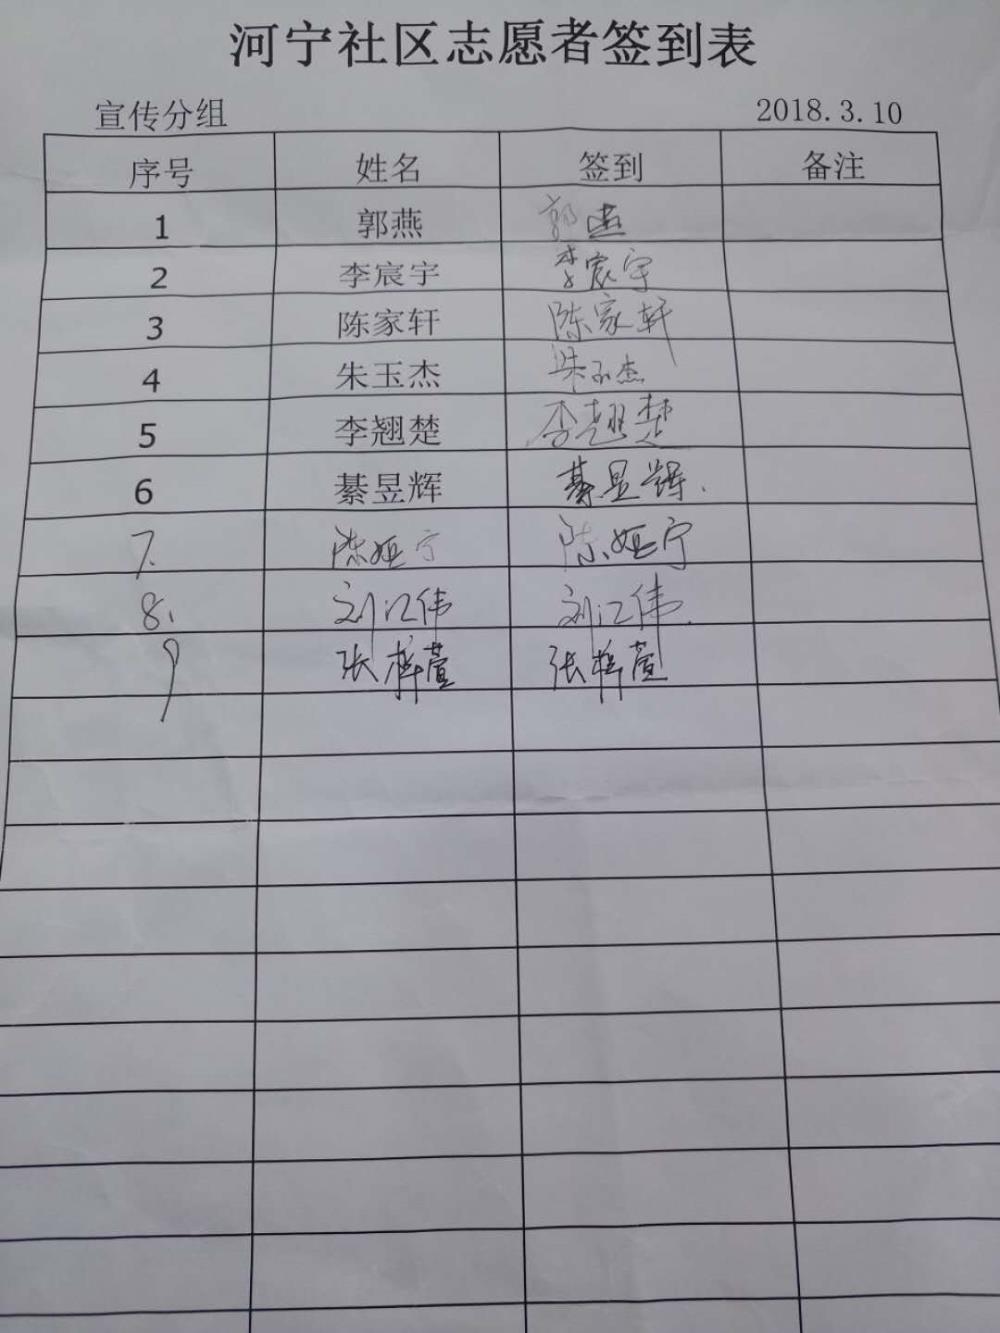 河宁社区志愿者签到表
宣传分组 2018.3.10
序号 姓名 签到 备注
1 郭燕 郭燕
2 李宸宇 李宸宇
3 陈家轩 陈家轩
4 朱玉杰 朱玉杰
5 李翘楚 李翘楚
6 綦昱辉 綦昱辉.
7. 陈姮宁 陈姮宁
8. 刘江伟 刘江伟.
9 张梓萱 张梓萱